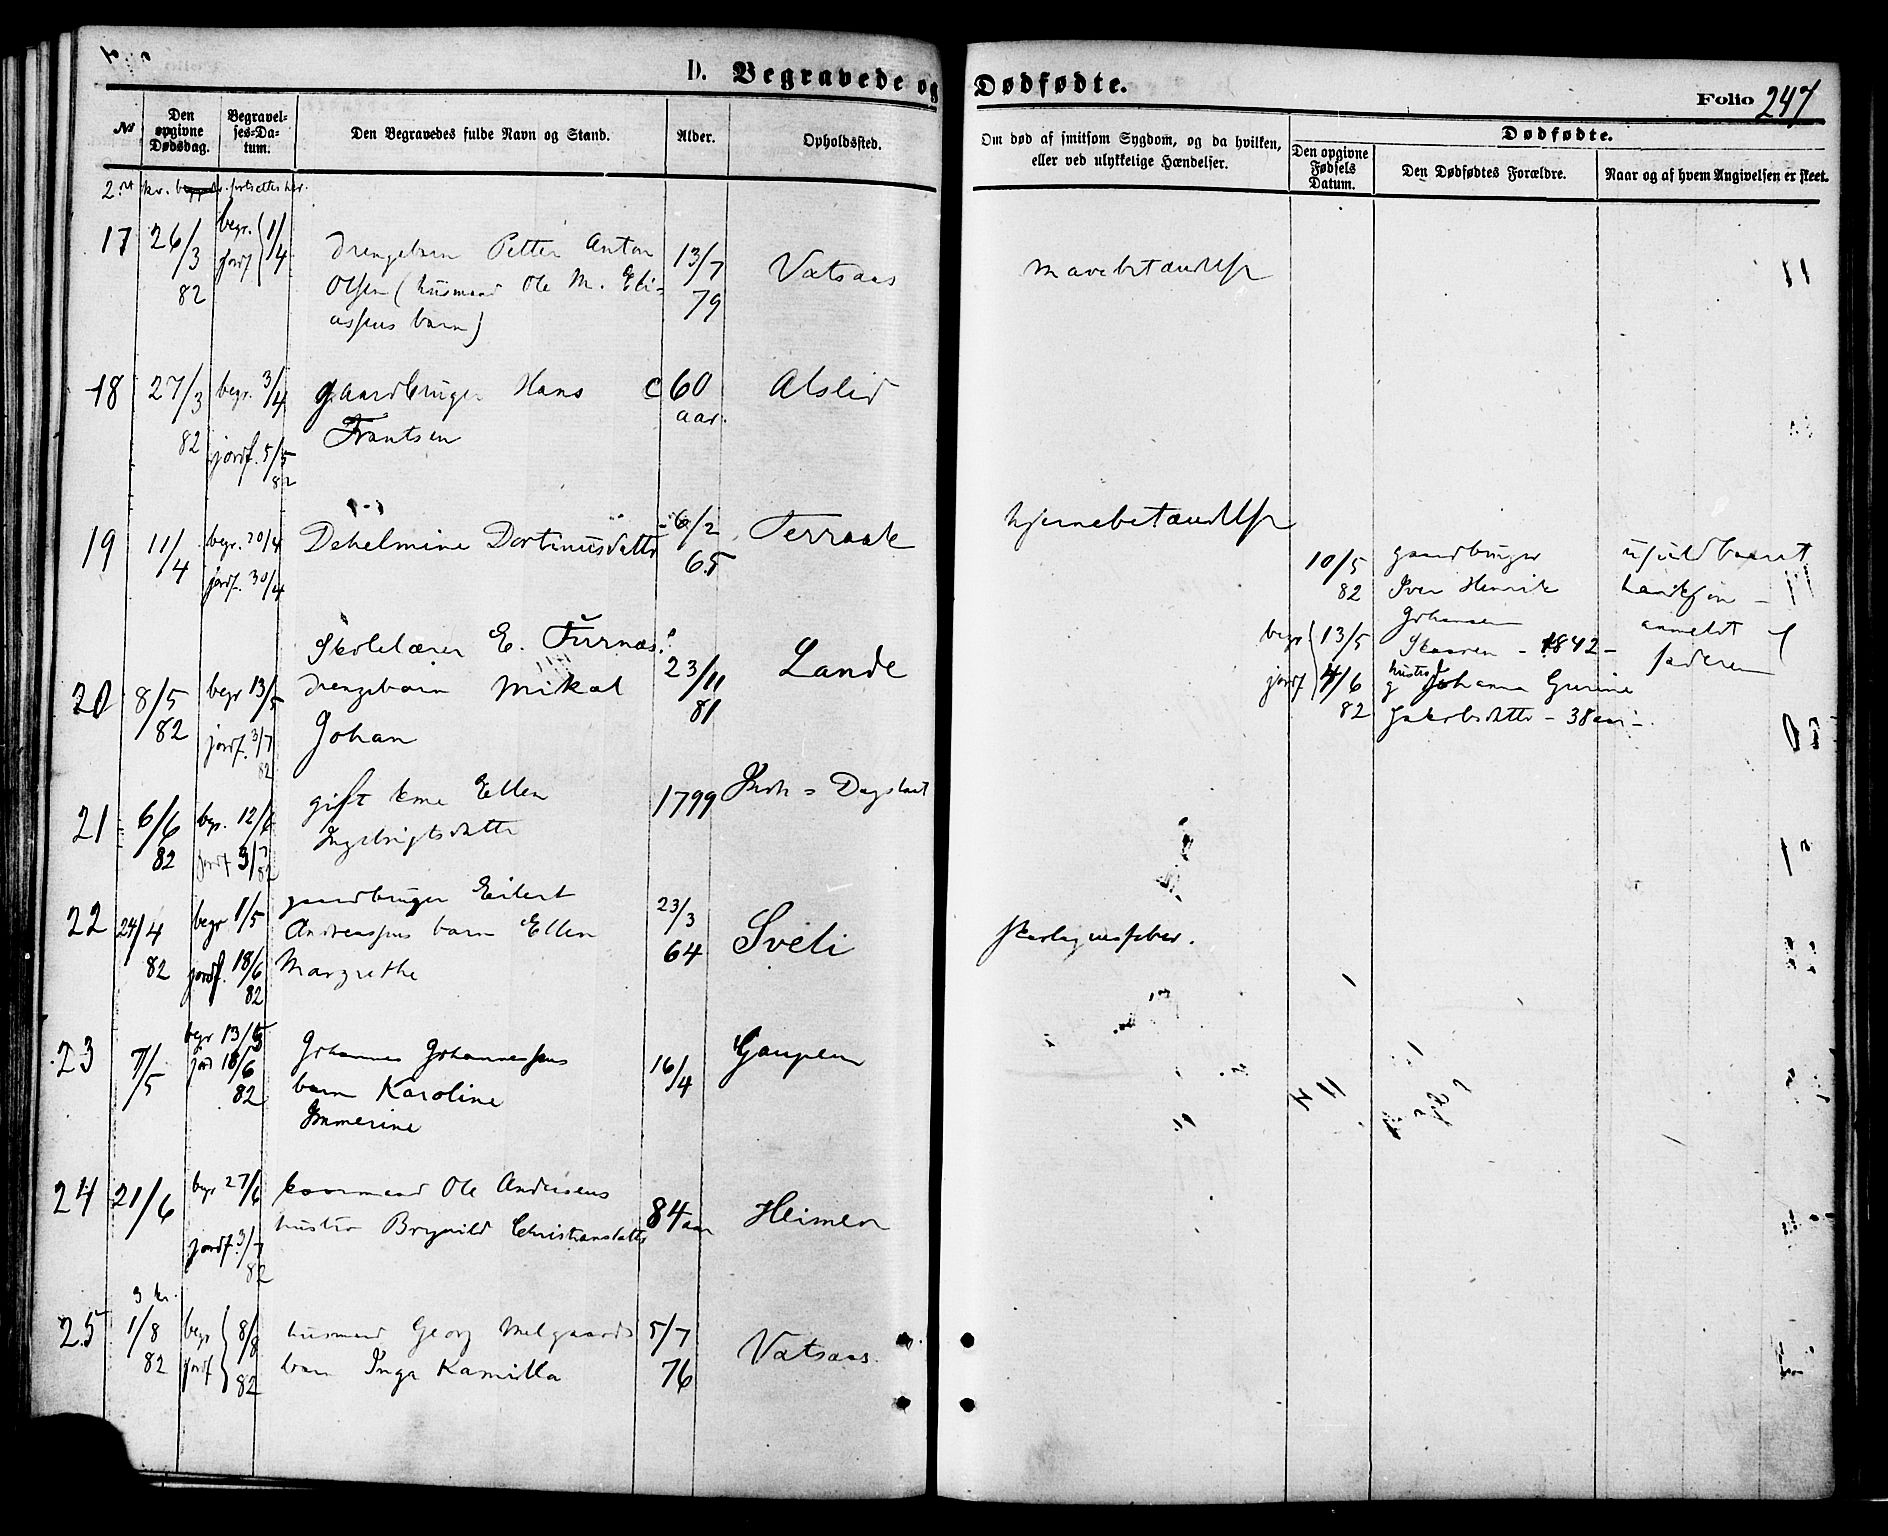 D. Begravede og Dødfødte.
Folio 247
No
Den opgivne Dødsdag.
Begravelses-Datum.
Den Begravedes fulde Navn og Stand.
Alder.
Opholdssted.
Om død af smitsom Sygdom, og da hvilken, eller ved ulykkelige Hændelser.
Dødfødte.
Den opgivne Fødsels Datum.
Den Dødfødtes Forældre.
Naar og af hvem Angivelsen er skeet.
17 26/3 82 begr. jordf 1/4
Drengebarn Petter Anton
Olsen (husmand Ole M. Eli-
assens barn)
13/7 79
Vatsaas
mavebetændelse
18 27/3 82 begr. 3/4 jordf. 5/5 82
gaardbruger Hans
Frantsen
c 60 aar.
Alslid
19 11/4 begr. 20/4 jordf. 30/4
Dehelmine Dortinusdatter
6/2 65
Terraak
hjernebetændelse
10/5 82
begr 13/5
jordf 4/6 82
gaardbruger
Iver Henrik
Johansen
Skaaren - 1842 -
g hustro Johanna Gurine
Jakobsdatter - 38 aar -
ufuldbaaret
anmeldt af
faderen
20 8/5 82 begr 13/5 jordf. 3/7 82
Skolelærer E. Furnæs:
drengebarn Mikal
Johan
23/11 81
Lande
21 6/6 82 begr. 12/6 jordf 3/7 82
gift kone Ellen
Ingebrigtsdatter
1799
22 24/4 82 begr 1/5 jordf. 18/6 82
gaardbruger Eilert
Andreassens barn Ellen
Margrethe
23/3 64
Sveli
skarlagensfeber.
23 7/5 begr 13/5 jord 18/6 82
Johannes Johannessens
barn Karoline
Immerine
16/4
Gaupen
24 21/6 begr 27/6 jordf. 3/7 82
Ole Andersens
hustro Brynild Christiansdatter
84 aar
Heimen
3 kv.
25 1/8 82 begr jordf 8/8 82
husmand Georg Melgaards
barn Inga Kamilla
5/7 76
Vatsaas.